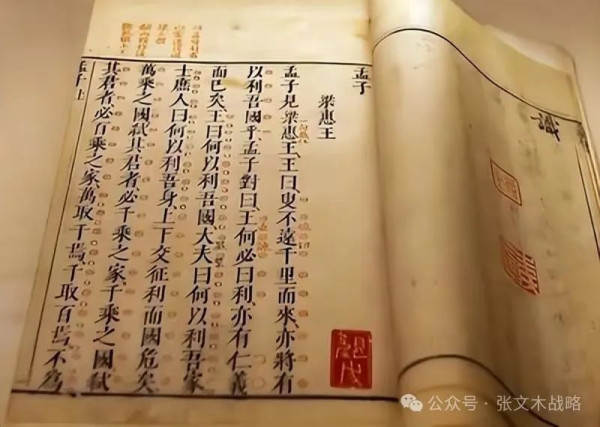 識
孟子
梁惠王
孟子見梁惠王、王曰、叟不遠千里而來、亦將有
以利吾國乎、孟子對曰、王何必曰利、亦有仁義
而已矣、王曰何以利吾國、大夫曰何以利吾家、
士庶人曰何以利吾身、上下交征利而國危矣、
萬乘之國弒其君者、必千乘之家、千乘之國弒
其君者、必百乘之家、萬取千焉、千取百焉、不爲
孟子上
公众号 · 张文木战略